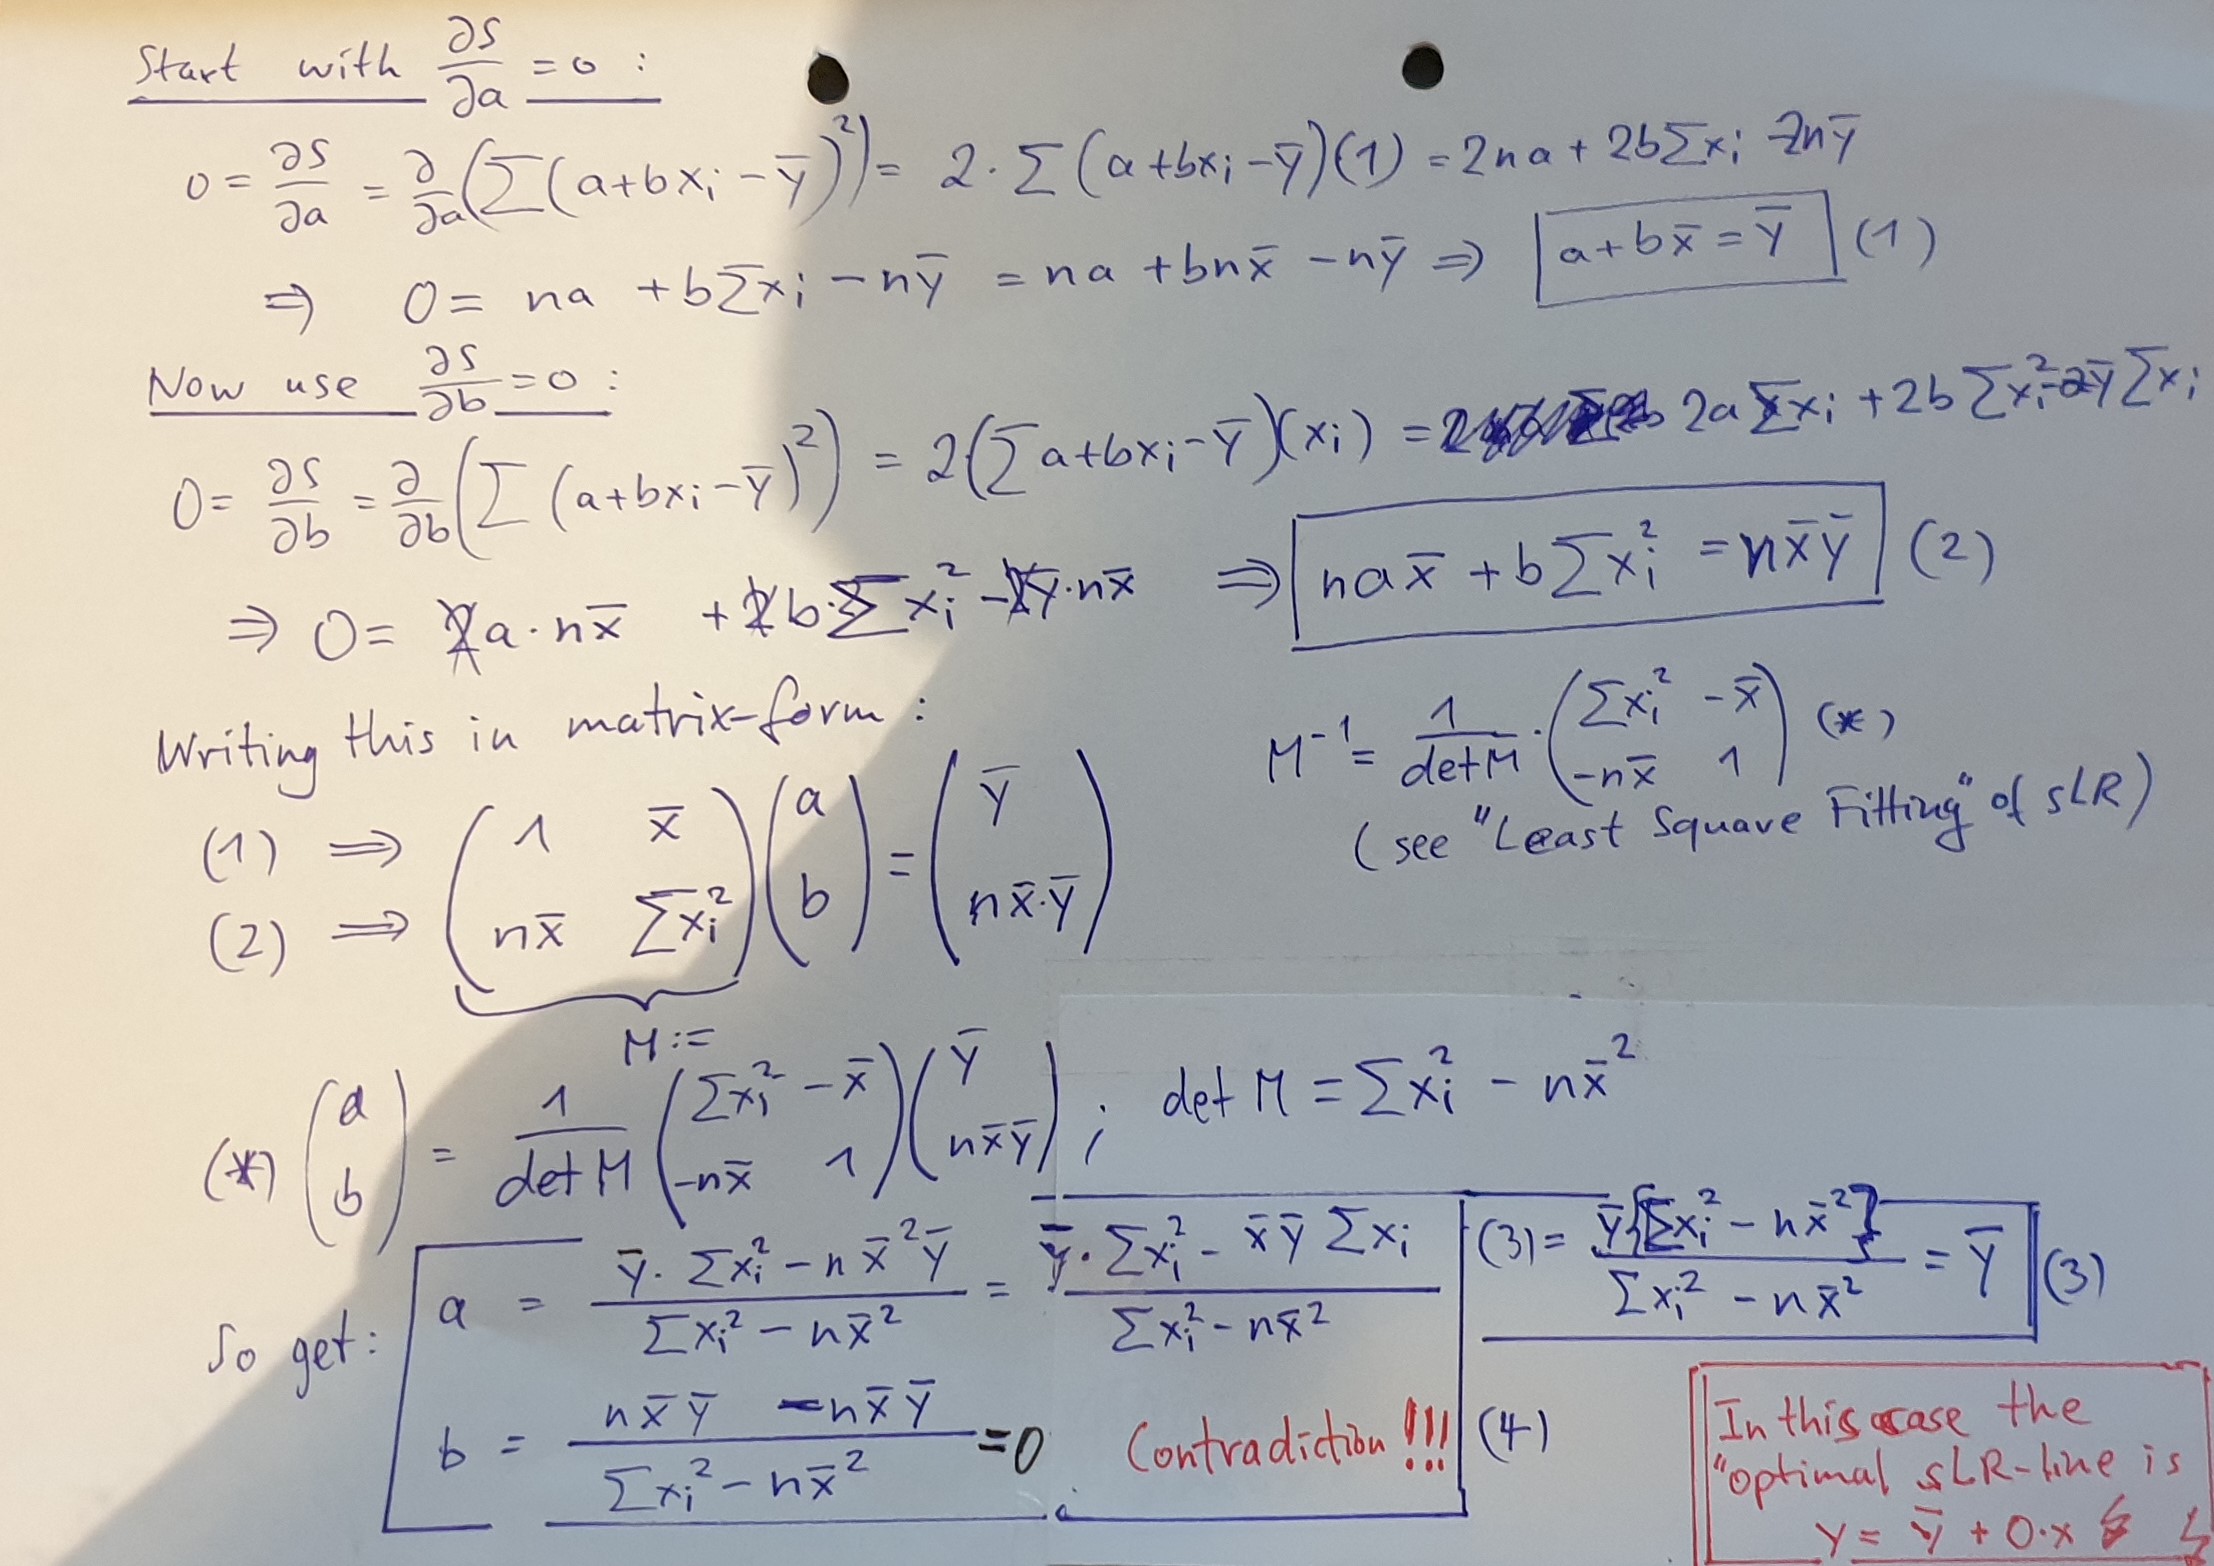 Start with ∂S/∂a = 0 :
0 = ∂S/∂a = ∂/∂a (∑(a+bxᵢ−ȳ)²) = 2·∑(a+bxᵢ−ȳ)(1) = 2na + 2b∑xᵢ −2nȳ
⇒ 0 = na + b∑xᵢ − nȳ = na + bnx̄ − nȳ ⇒ a+bx̄ = ȳ (1)
Now use ∂S/∂b = 0 :
0 = ∂S/∂b = ∂/∂b (∑(a+bxᵢ−ȳ)²) = 2(∑a+bxᵢ−ȳ)(xᵢ) = 2a∑xᵢ + 2b∑xᵢ² −2ȳ∑xᵢ
⇒ 0 = 2a·nx̄ + 2b·∑xᵢ² − 2ȳ·nx̄ ⇒ nax̄ + b∑xᵢ² = nx̄ȳ (2)
Writing this in matrix-form :
M⁻¹ = 1/det M · (∑xᵢ² −x̄ ; −nx̄ 1) (*)
(see "Least Square Fitting" of sLR)
(1) ⇒ (1 x̄) (a) = (ȳ)
(2) ⇒ (nx̄ ∑xᵢ²) (b) = (nx̄·ȳ)
M :=
(*) (a ; b) = 1/det M (∑xᵢ² −x̄ ; −nx̄ 1) (ȳ ; nx̄ȳ) ; det M = ∑xᵢ² − nx̄²
So get: a = (ȳ·∑xᵢ² − nx̄²ȳ)/(∑xᵢ² − nx̄²) = (ȳ·∑xᵢ² − x̄ȳ∑xᵢ)/(∑xᵢ² − nx̄²) (3) = ȳ{∑xᵢ² − nx̄²}/(∑xᵢ² − nx̄²) = ȳ (3)
b = (nx̄ȳ − nx̄ȳ)/(∑xᵢ² − nx̄²) = 0 Contradiction!!! (4)
In this case the
"optimal sLR-line is
y = ȳ + 0·x